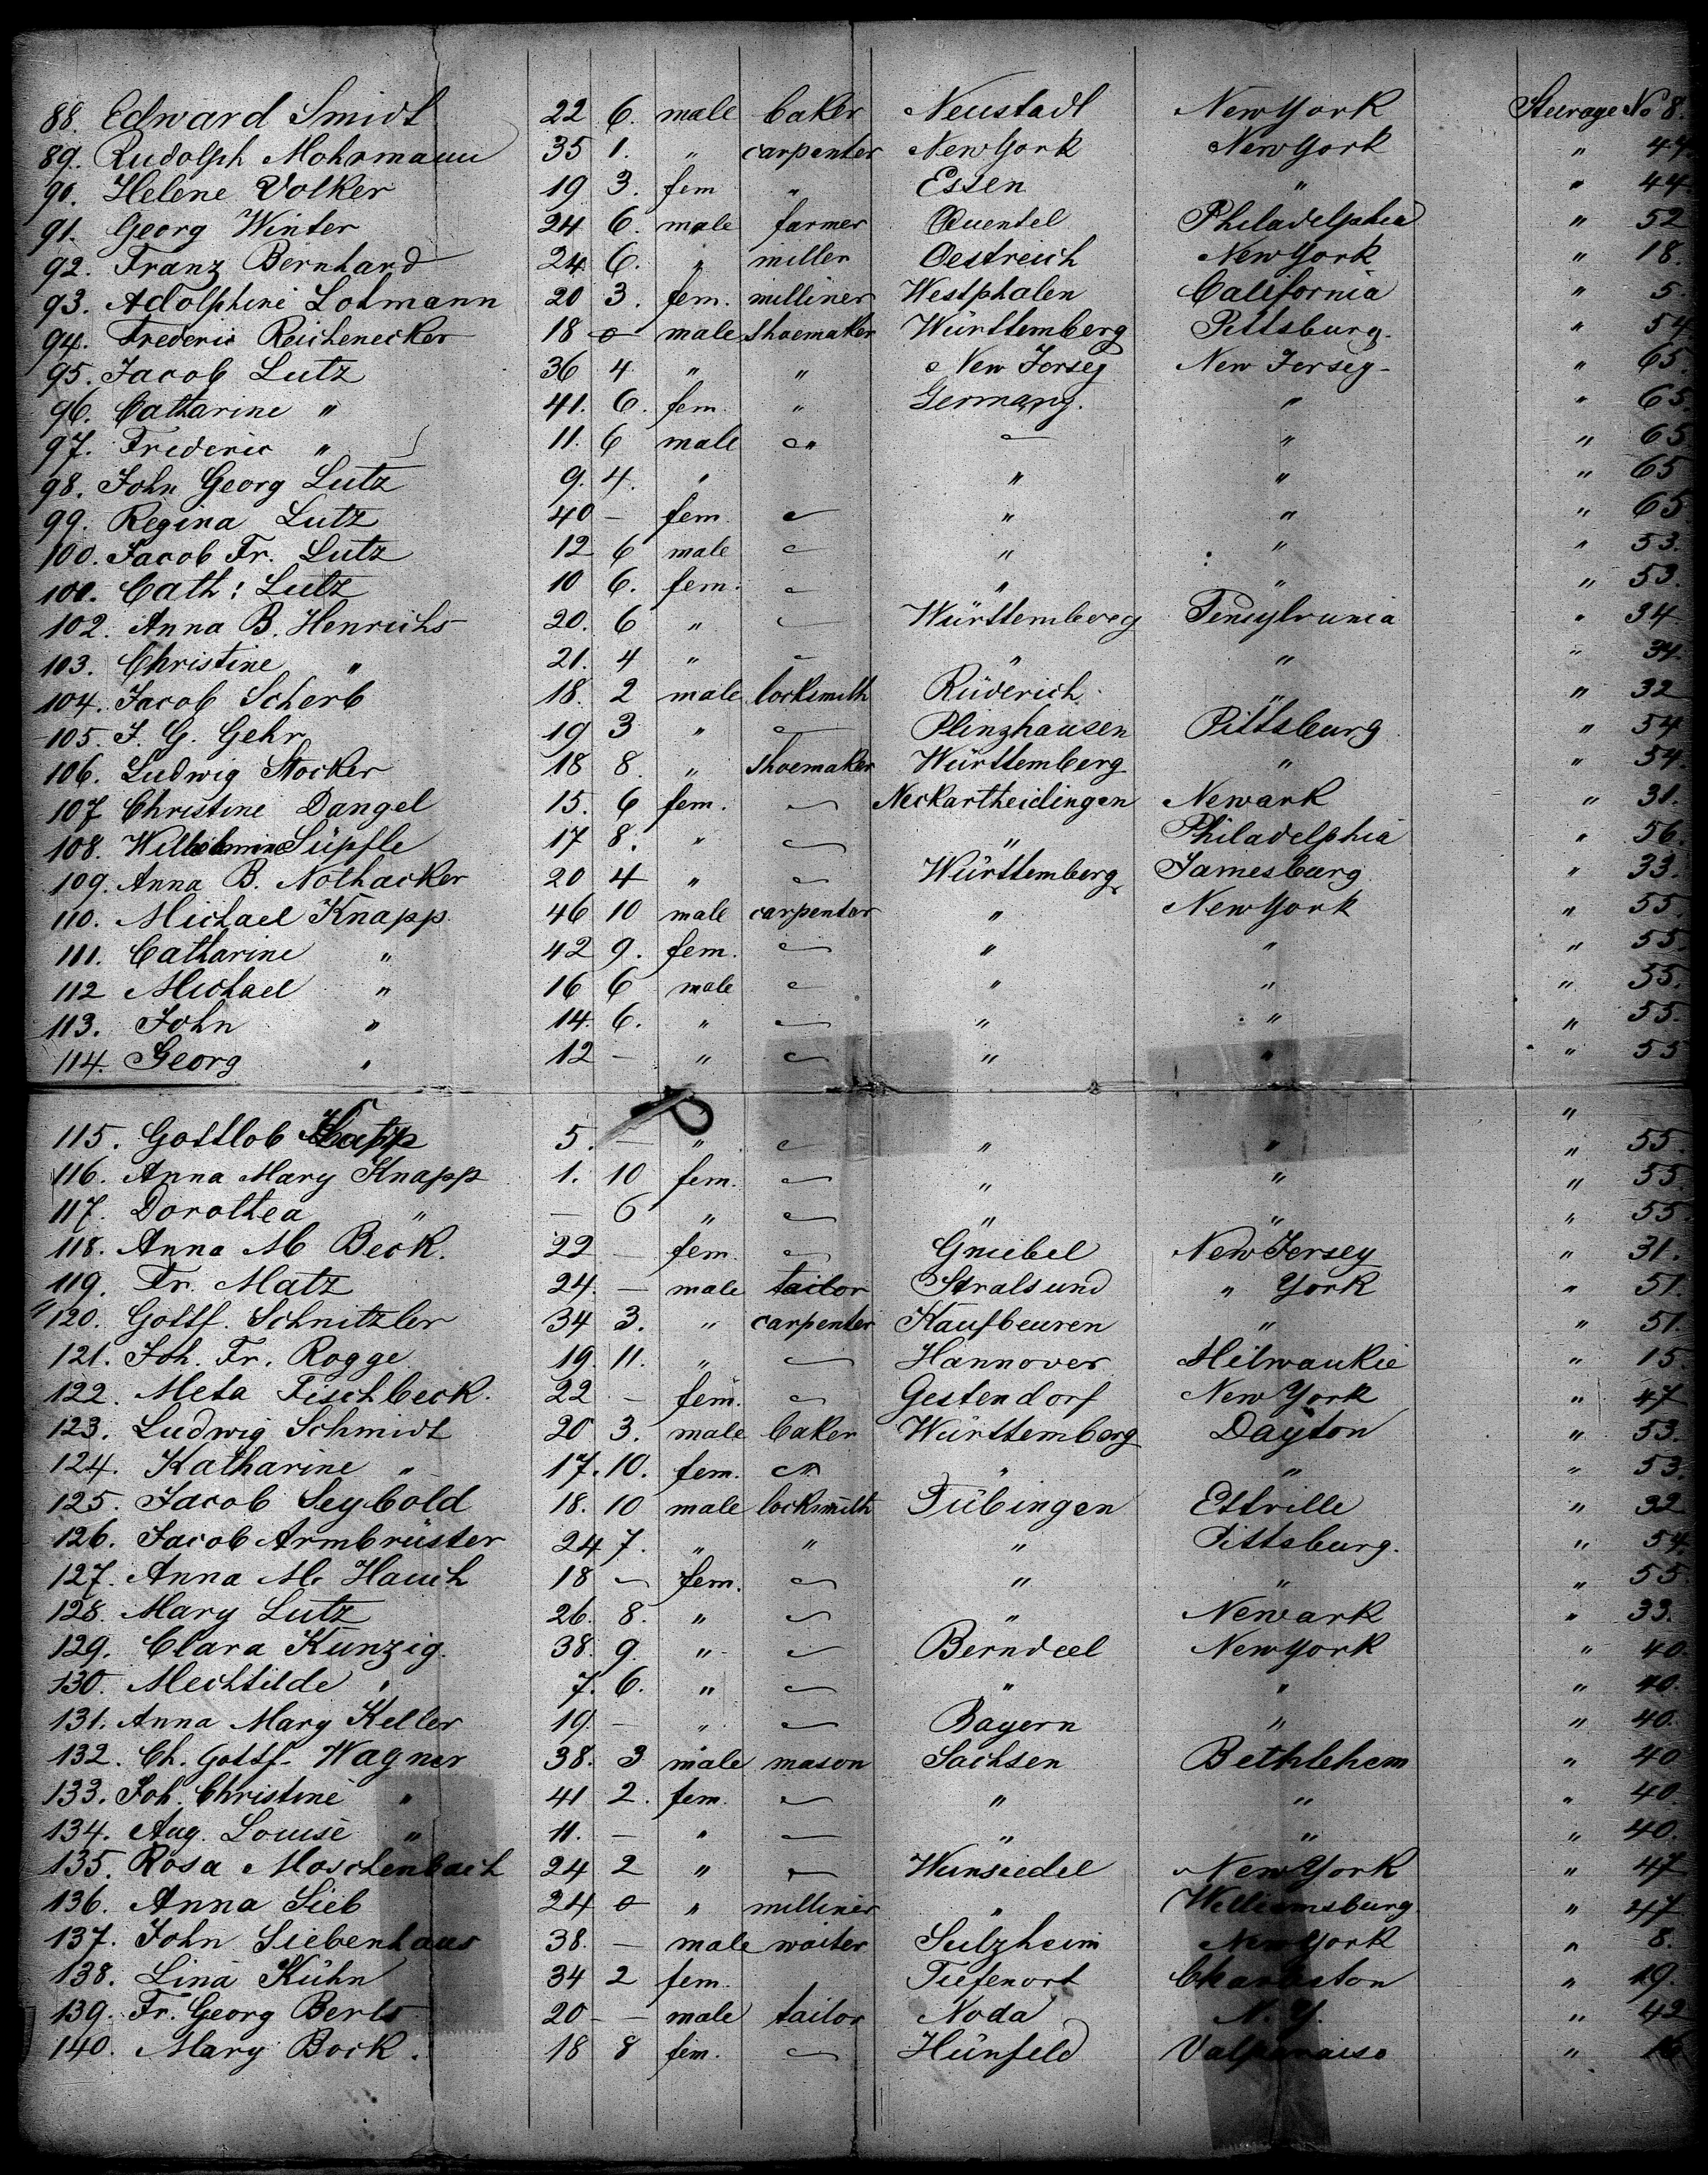 88. Edward Smidt 22 6. male baker Neustadt New York Steerage No 8.
89. Rudolph Mohrmann 35 1. " carpenter New York New York " 44
90. Helene Volker 19 3. fem " Essen " " 44
91. Georg Winter 24 6. male farmer Quentel Philadelphia " 52
92. Franz Bernhard 24 6. " miller Oestreich New York " 18.
93. Adolphine Lohmann 20 3. fem. milliner Westphalen California " 5.
94. Frederic Reichenecker 18 0 male shoemaker Württemberg Pittsburg. " 54
95. Jacob Lutz 36 4. " " New Jersey New Jersey " 65.
96. Catharine " 41. 6. fem. " Germany. " " 65.
97. Frederic " 11. 6 male " — " " 65
98. John Georg Lutz 9. 4. " " " " 65
99. Regina Lutz 40 — fem. — " " " 65
100. Jacob Fr. Lutz 12 6 male — " " " 53.
101. Cath: Lutz 10 6. fem. — " " " 53.
102. Anna B. Henrichs 20. 6 " — Württemberg Pensylvania " 34
103. Christine " 21. 4 " — " " " 34.
104. Jacob Scherb 18. 2 male locksmith Rüderich " " 32
105. J. G. Gehr 19 3 " — Plinzhausen Pittsburg " 54
106. Ludwig Stocker 18 8. " shoemaker Württemberg " " 54.
107 Christine Dangel 15. 6 fem. — Neckartheidingen Newark " 31.
108. Wilhelmine Süpfle 17 8. " — " Philadelphia " 56.
109. Anna B. Nothacker 20 4 " — Württemberg Jamesburg " 33.
110. Michael Knapp. 46 10 male carpenter " New York " 55.
111. Catharine " 42 9. fem. — " " " 55.
112 Michael " 16 6 male — " " " 55.
113. John " 14. 6. " — " " " 55.
114. Georg " 12 — " — " " " 55
"
115. Gottlob Knapp 5. — " — " " " 55.
116. Anna Mary Knapp 1. 10 fem. — " " " 55.
117. Dorothea " — 6 " — " " " 55.
118. Anna M Beck. 22 — fem. — Gniebel New Jersey " 31.
119. Fr. Matz 24. — male tailor Stralsund " York " 51.
120. Gottf. Schnitzler 34 3. " carpenter Kaufbeuren " " 51.
121. Joh. Fr. Rogge 19. 11. " — Hannover Milwaukie " 15.
122. Meta Fischbeck. 22 — fem. — Gestendorf New York " 47
123. Ludwig Schmidt 20 3. male baker Württemberg Dayton " 53.
124. Katharine " 17. 10. fem. " " " " 53.
125. Jacob Seybold 18. 10 male locksmith Tübingen Ettville " 32
126. Jacob Armbrüster 24 7. " " " Pittsburg. " 54.
127. Anna M. Hauch 18 — fem. — " " " 55.
128. Mary Lutz 26. 8. " — " Newark " 33.
129. Clara Kunzig. 38. 9. " — Berndeel New York " 40.
130. Mechtilde " 7. 6. " — " " " 40.
131. Anna Mary Keller 19. — " — Bayern " " 40.
132. Ch. Gottf. Wagner 38. 3 male mason Sachsen Bethlehem " 40
133. Joh. Christine " 41 2. fem. — " " " 40.
134. Aug. Louise " 11. — " — " " " 40.
135. Rosa Moschenbach 24 2 " — Wunsiedel New York " 47
136. Anna Sieb 24 0 " milliner " Williamsburg. " 47
137. John Siebenhaus 38. — male waiter Sulzheim New York " 8.
138. Lina Kühn 34 2 fem. Tiefenort Charleston " 19.
139. Fr. Georg Berls 20 — — male tailor Noda N. Y. " 42
140. Mary Bock. 18 8 fem. — Hünfeld Valparaiso " 16